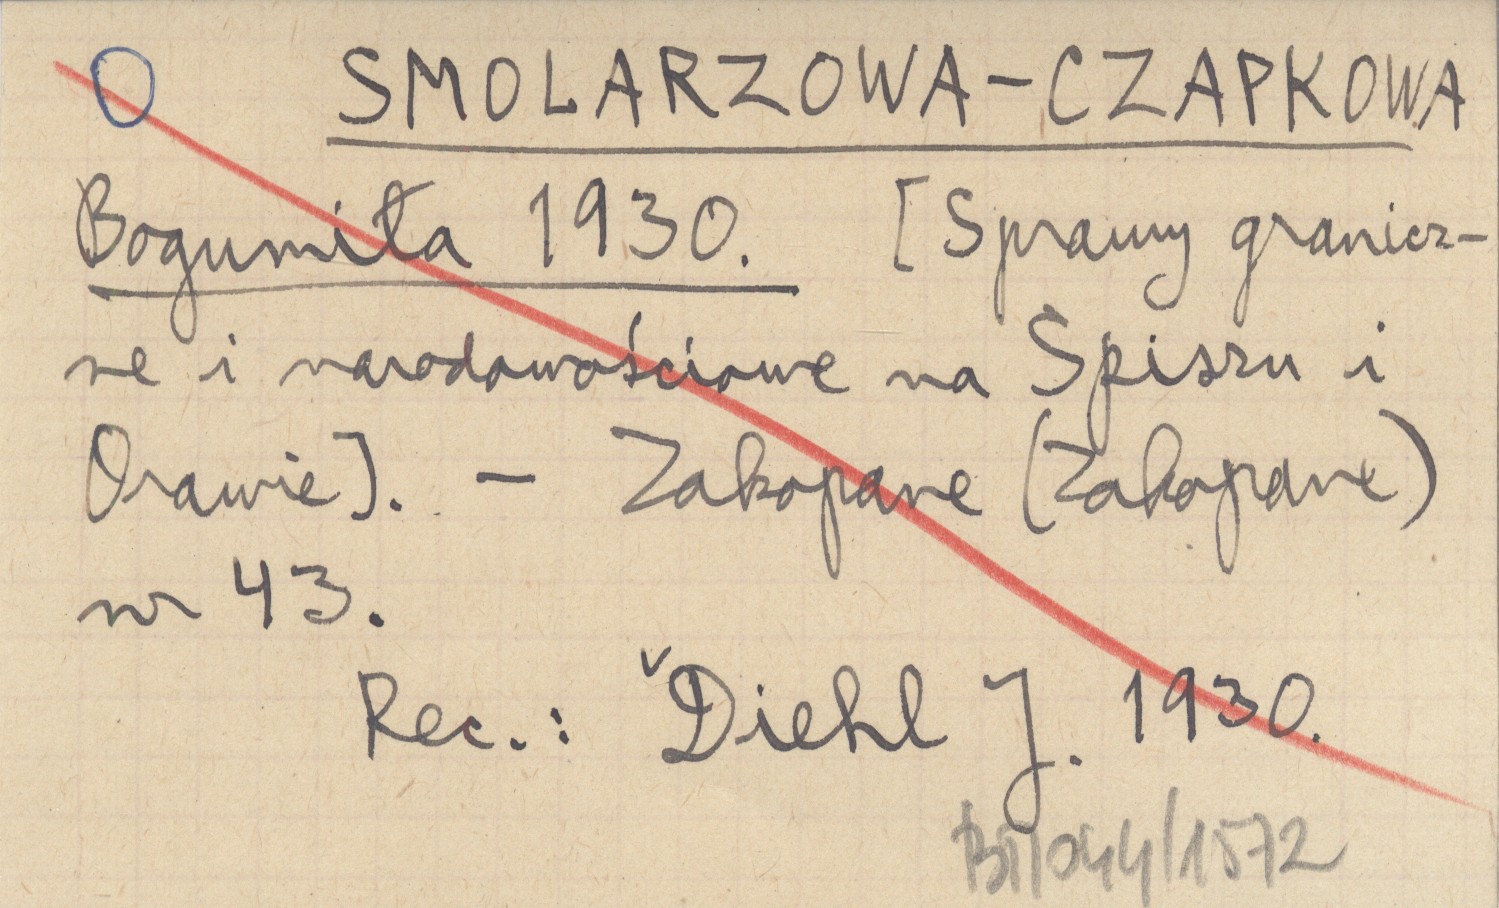 O SMOLARZOWA-CZAPKOWA
Bogumiła 1930. [Sprawy granicz-
ne i narodowościowe na Spiszu i
Orawie]. - Zakopane (Zakopane)
nr 43.
Rec.: ˅Diehl J. 1930.
BI/044/1572